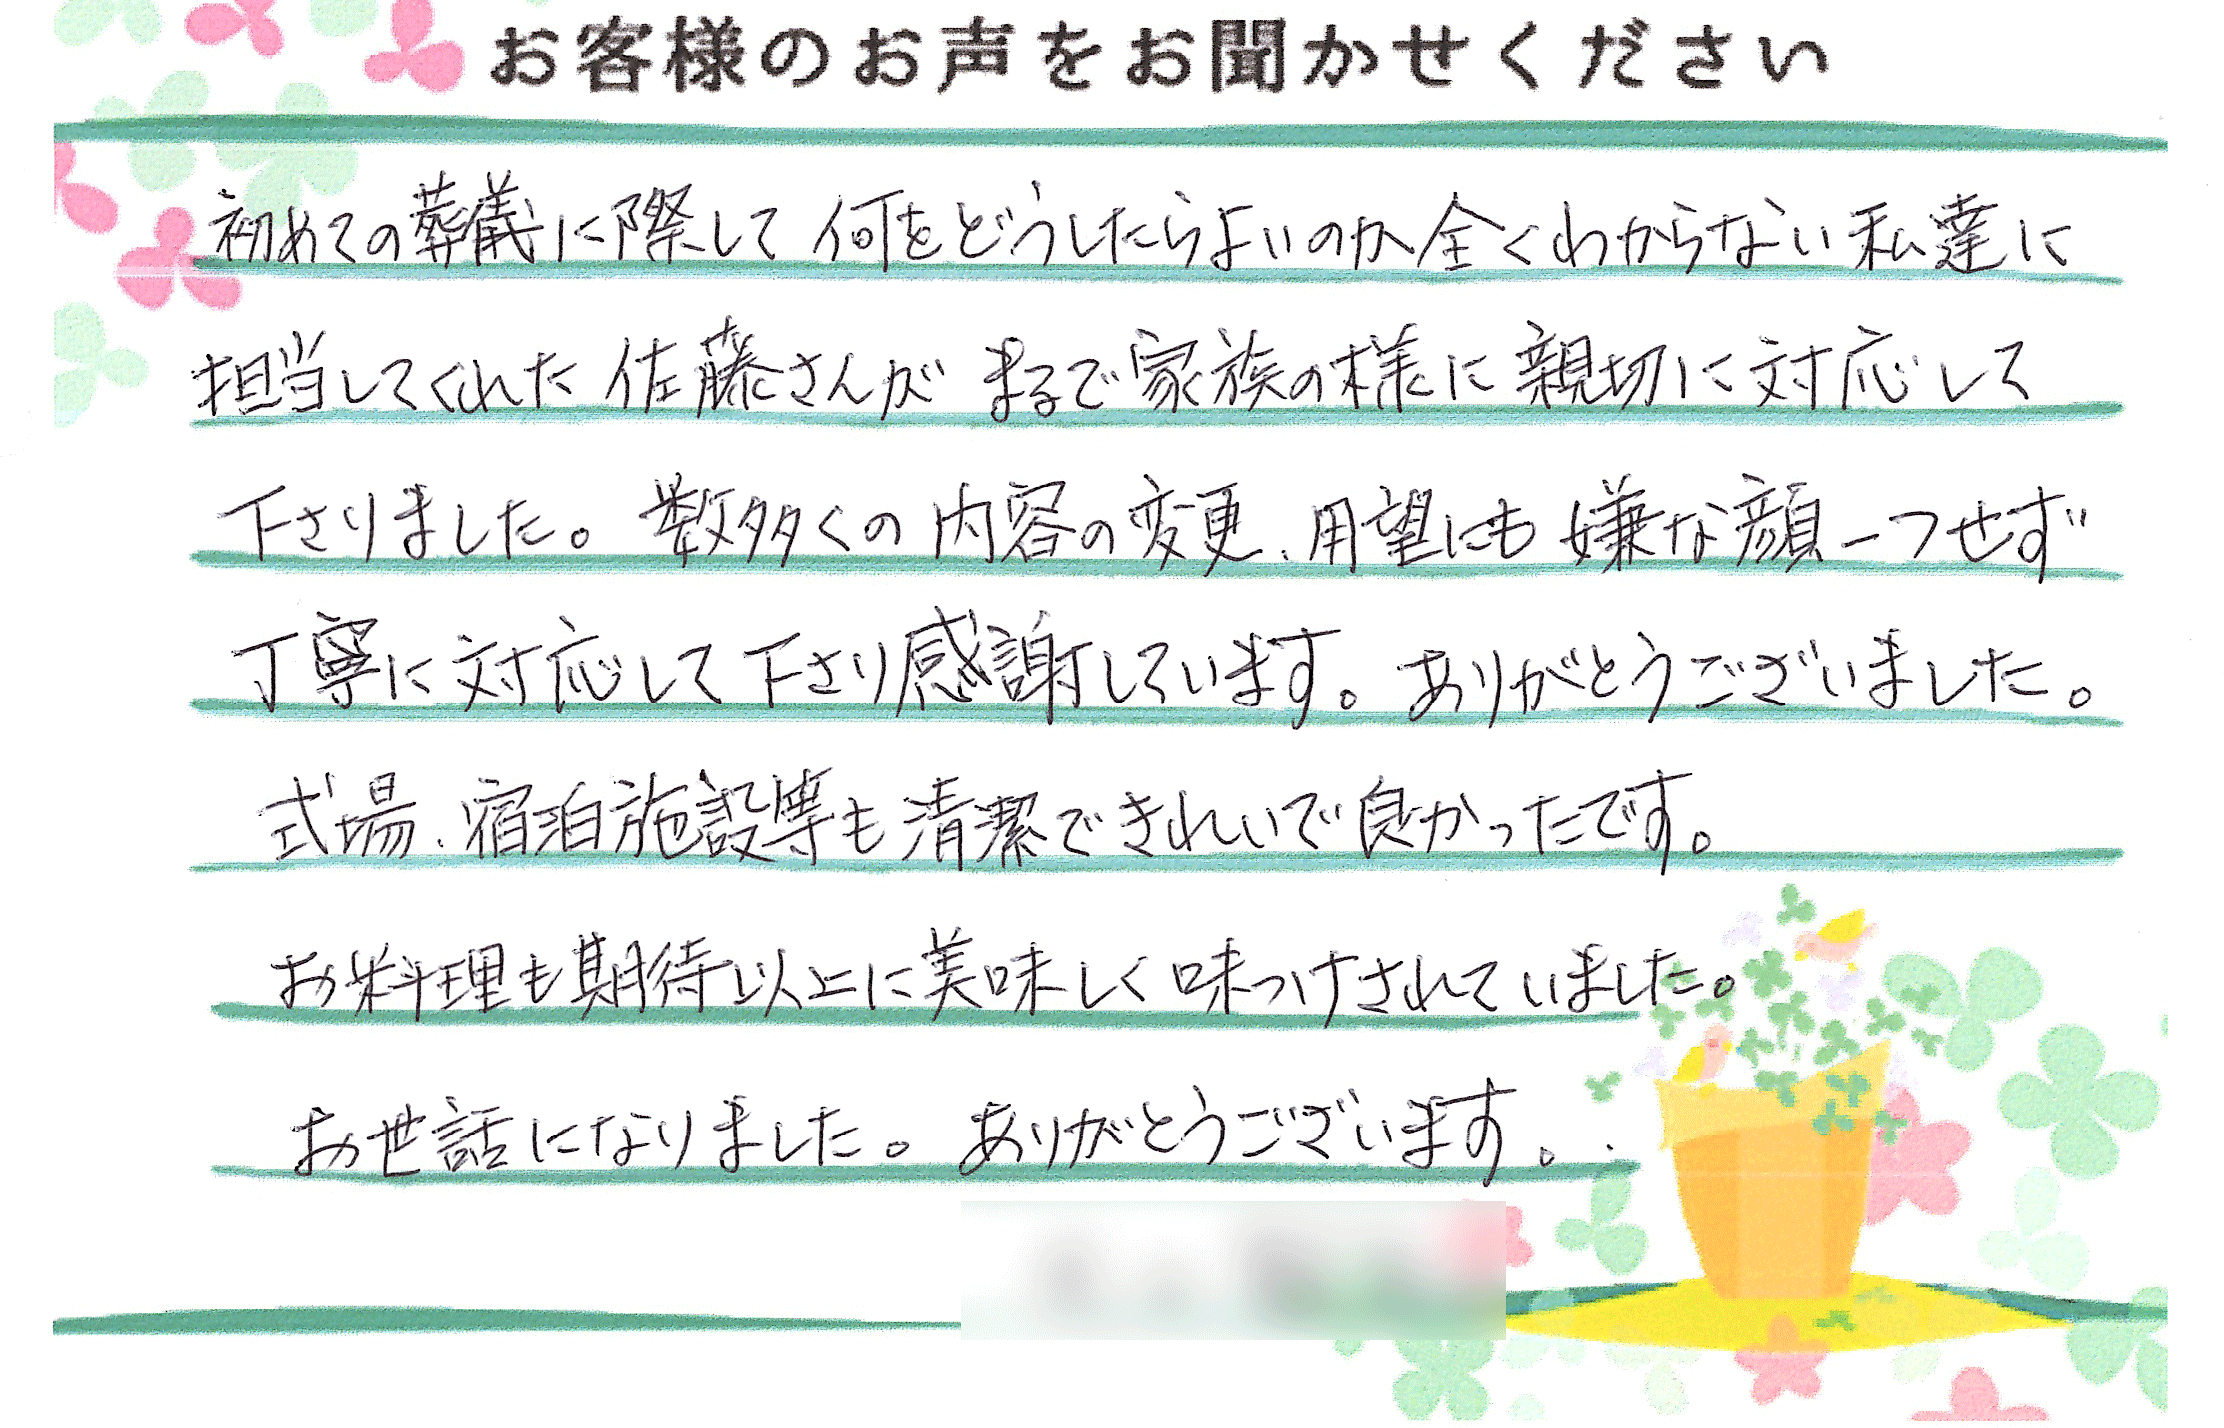 お客様のお声をお聞かせください
初めての葬儀に際して 何をどうしたらよいのか全くわからない私達に
担当してくれた佐藤さんが まるで家族の様に親切に対応して
下さりました。数多くの内容の変更、用望にも嫌な顔一つせず
丁寧に対応して下さり感謝しています。ありがとうございました。
式場、宿泊施設等も清潔できれいで良かったです。
お料理も期待以上に美味しく味つけされていました。
お世話になりました。ありがとうございます。